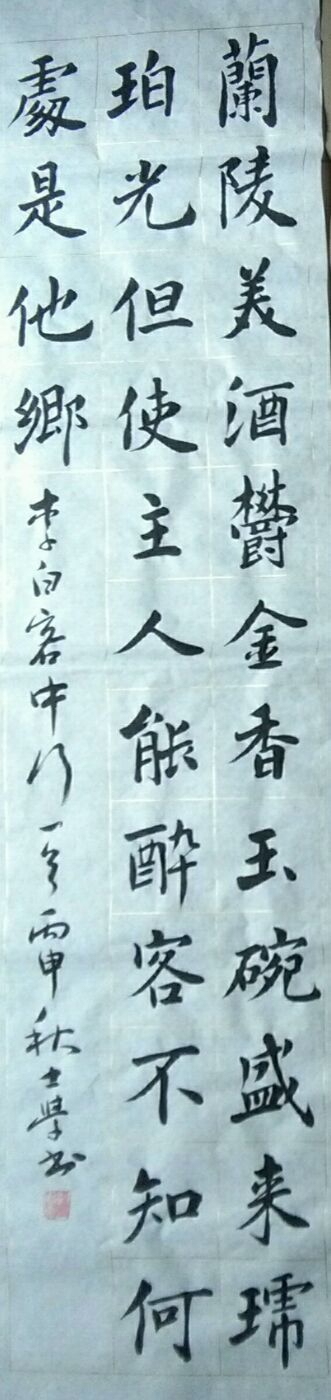 蘭陵美酒鬱金香玉碗盛来琥
珀光但使主人能醉客不知何
處是他鄉
李白客中行一首丙申秋士學書